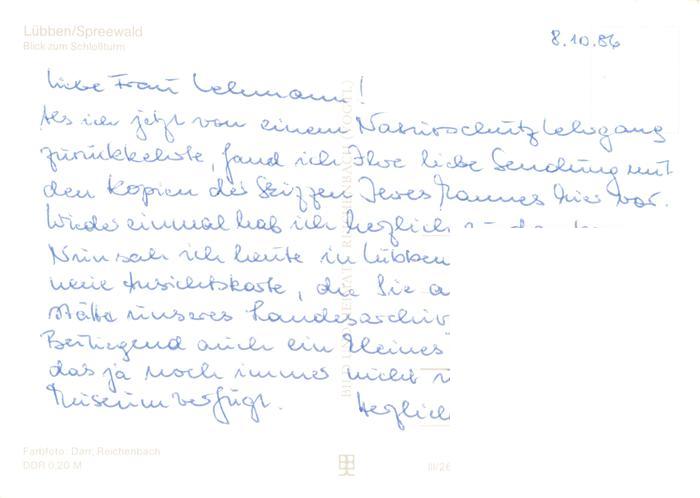 Lübben/Spreewald
Blick zum Schloßturm
8.10.86
Liebe Frau Lehmann!
Als ich jetzt von einem Naturschutzlehrgang
zurückkehrte, fand ich Ihre liebe Sendung mit
den Kopien der Skizzen Ihres Mannes hier vor.
Wieder einmal hab ich herzlich
Nun sah ich heute in Lübben
neue Ansichtskarte, die Sie a
stätte unseres Landesarchiv
Beiliegend auch ein kleines
das ja noch immer nicht
Museum verfügt. Herzlich
Farbfoto: Darr, Reichenbach
DDR 0,20 M
III/26